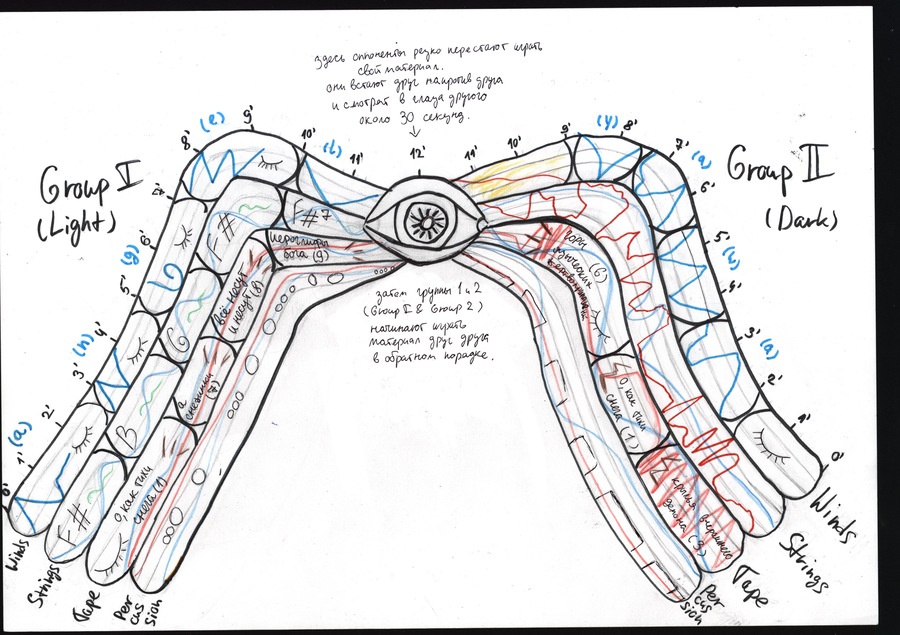 здесь оппоненты резко перестают играть
свой материал.
они встают друг напротив друга
и смотрят в глаза другого
около 30 секунд.
Group I
(Light)
Group II
(Dark)
0'
1'
(a)
2'
3'
(n)
4'
5'
(g)
6'
7'
8'
(e)
9'
10'
(l)
11'
12'
11'
10'
9'
(y)
8'
7'
(a)
6'
5'
4'
3'
(a)
2'
1'
0'
F#
B
G
F#
F#7
о, как тихи
снега (1)
а
снежинки
(7)
всё несут
и несут (8)
иероглифы
бога (9)
горы
(6)
о, как тихи
снега (1)
крылья
демона (3)
затем группы 1 и 2
(Group I & Group 2)
начинают играть
материал друг друга
в обратном порядке.
Winds
Strings
Tape
Per
cus
sion
Winds
Strings
Tape
Per
cus
sion